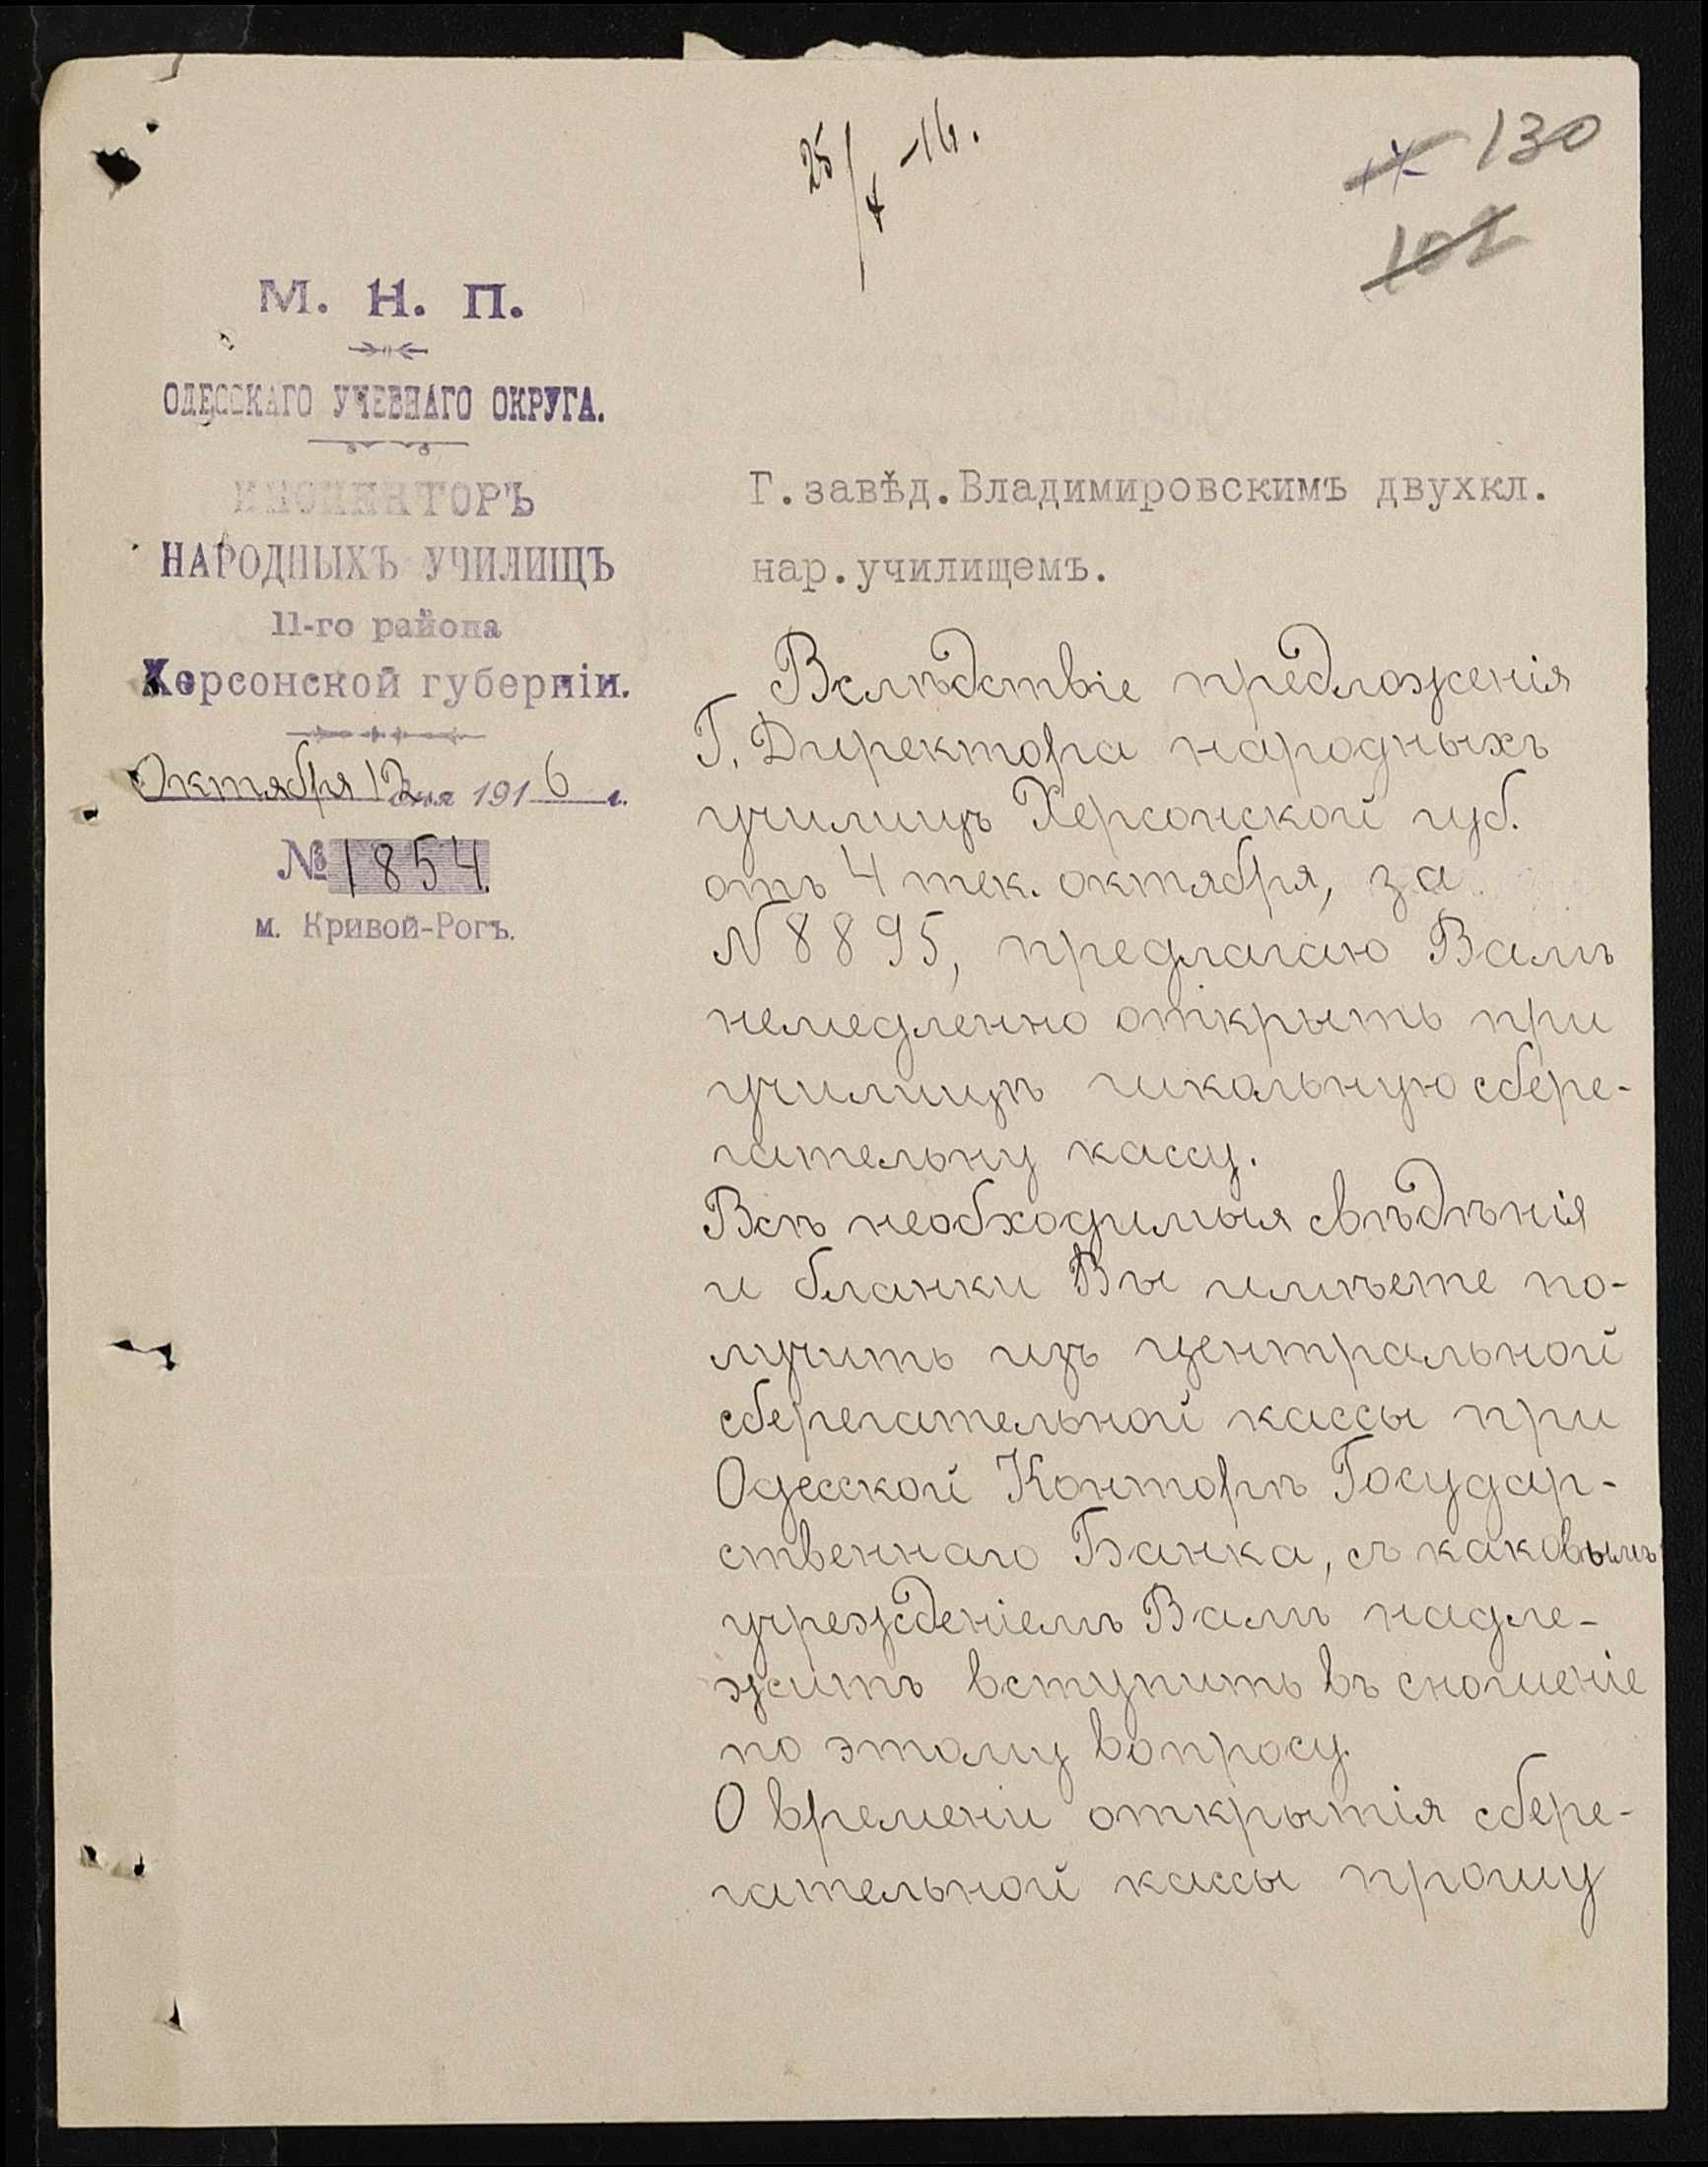 130
102
М. Н. П.
ОДЕССКАГО УЧЕБНАГО ОКРУГА.
ИНСПЕКТОРЪ
НАРОДНЫХЪ УЧИЛИЩЪ
11-го района
Херсонской губерніи.
Октября 12 дня 1916 г.
№ 1854.
м. Кривой-Рогъ.
Г.завѣд.Владимировскимъ двухкл.
нар.училищемъ.
Вслѣдствіе предложенія
Г. Директора народныхъ
училищъ Херсонской губ.
отъ 4 тек. октября, за
N 8895, предлагаю Вамъ
немедленно открыть при
училищѣ школьную сбере-
гательну кассу.
Всѣ необходимыя свѣдѣнія
и бланки Вы имѣете по-
лучить изъ центральной
сберегательной кассы при
Одесской Конторѣ Государ-
ственнаго Банка, съ каковымъ
учрежденіемъ Вамъ надле-
житъ вступить въ сношеніе
по этому вопросу
О времени открытія сбере-
гательной кассы прошу